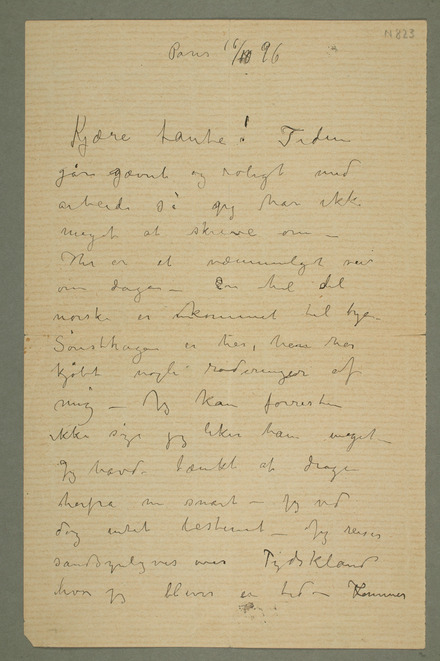 N 823
Paris 16/10 96
Kjære tante! Tiden
går jævnt og roligt med
arbeide så jeg har ikke
meget at skrive om –
Her er et væmmeligt veir
om dagen – En hel del
norske er kommet til byen
er her, han har
kjøbt nogle raderinger af
mig – Jeg kan forresten
ikke sige jeg liker ham meget –
Jeg havde tænkt at drage
herfra nu snart – jeg ved
dog intet bestemt – Jeg reiser
sandsynligvis over Tydskland
hvor jeg bliver en tid – Kommer